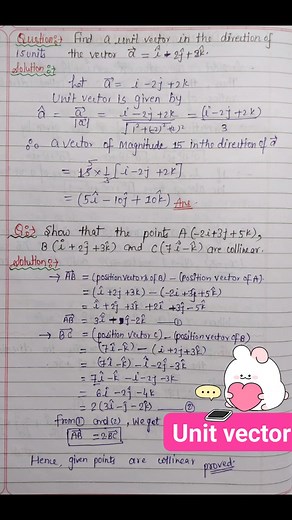 Question:- Find a unit vector in the direction of
15 units the vector a⃗ = î - 2ĵ + 2k̂.
Solution:-
Let a⃗ = i - 2j + 2k
Unit vector is given by
â = a⃗/|a⃗| = i-2j+2k/√1²+(-2)²+(2)² = (i-2j+2k)/3
∴ a vector of Magnitude 15 in the direction of a⃗
= 15 5 × 1/3 [i - 2j + 2k]
= (5î - 10ĵ + 10k̂) Ans
Q:- Show that the points A(-2i+3j+5k),
B(î+2ĵ+3k̂) and C(7î-k̂) are collinear.
Solution:-
→ AB = (position vectors of B) - (Position vector of A)
= (î+2ĵ+3k) - (-2i+3j+5k)
= î+2j+3k+2i+3j-5k
AB = 3î - ĵ - 2k̂ ①
→ BC = (position vector C) - (position vector of B)
= (7î-k̂) - (i+2j+3k)
= (7î-k̂) - î-2j-3k
= 7î-k-i-2j-3k
= 6i-2j-4k
= 2(3î-j-2k) ②
From ① and ②, We get
AB = 2BC
Hence, given points are collinear proved.
Unit vector